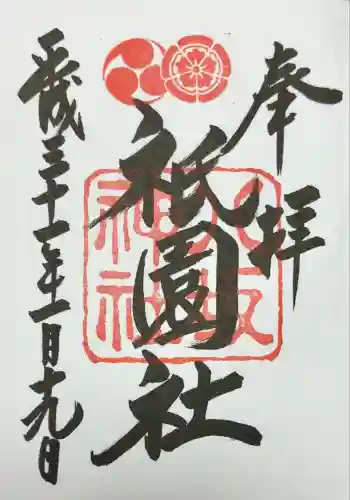 奉拝
八坂神社
祇園社
平成三十一年一月十九日